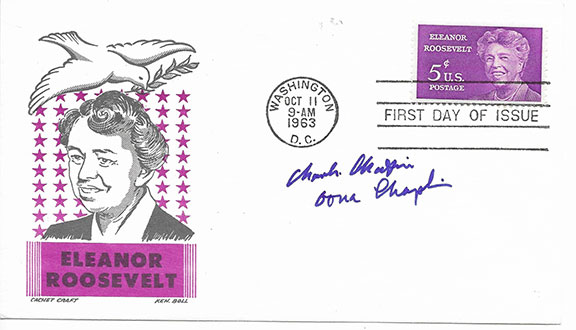 ELEANOR
ROOSEVELT
5¢ U.S.
POSTAGE
WASHINGTON
OCT 11
9-AM
1963
D. C.
FIRST DAY OF ISSUE
Oona Chaplin
ELEANOR
ROOSEVELT
CACHET CRAFT KEN BOLL